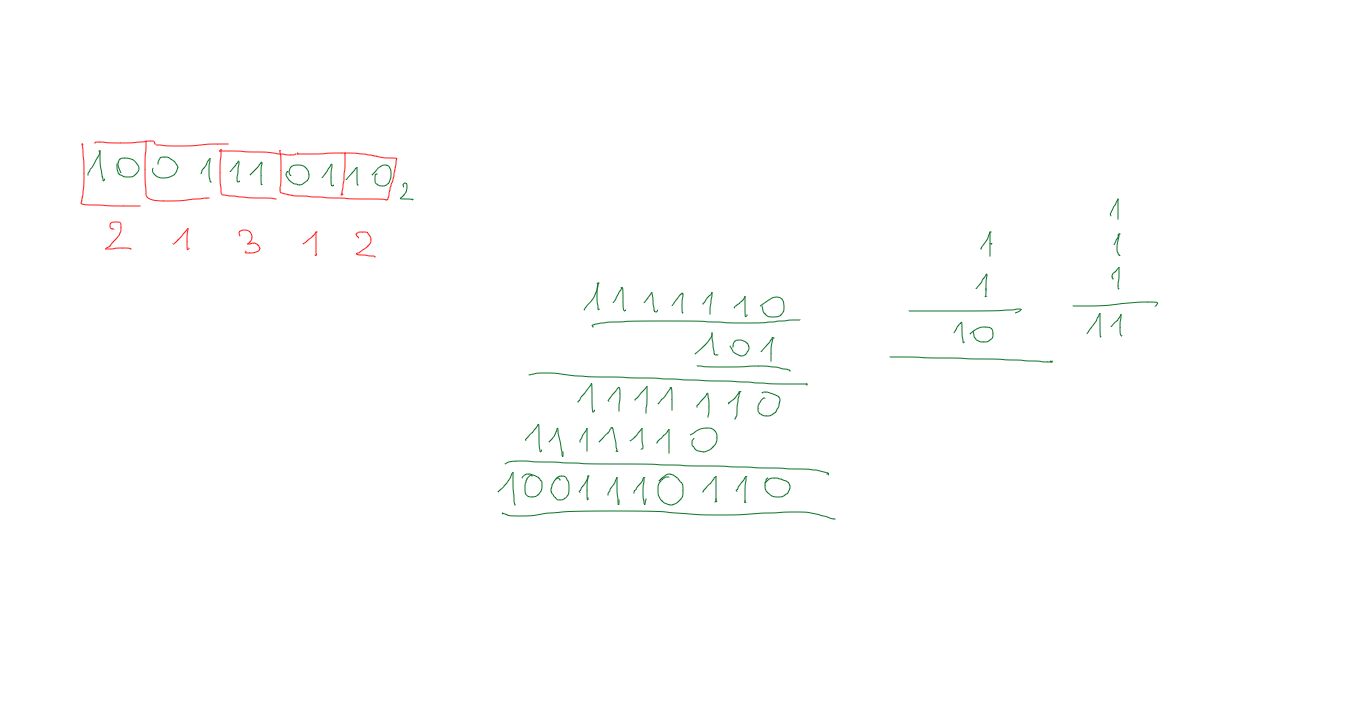 1001110110₂
2 1 3 1 2
1111110
101
1111110
1111110
1001110110
1
1
10
1
1
1
11